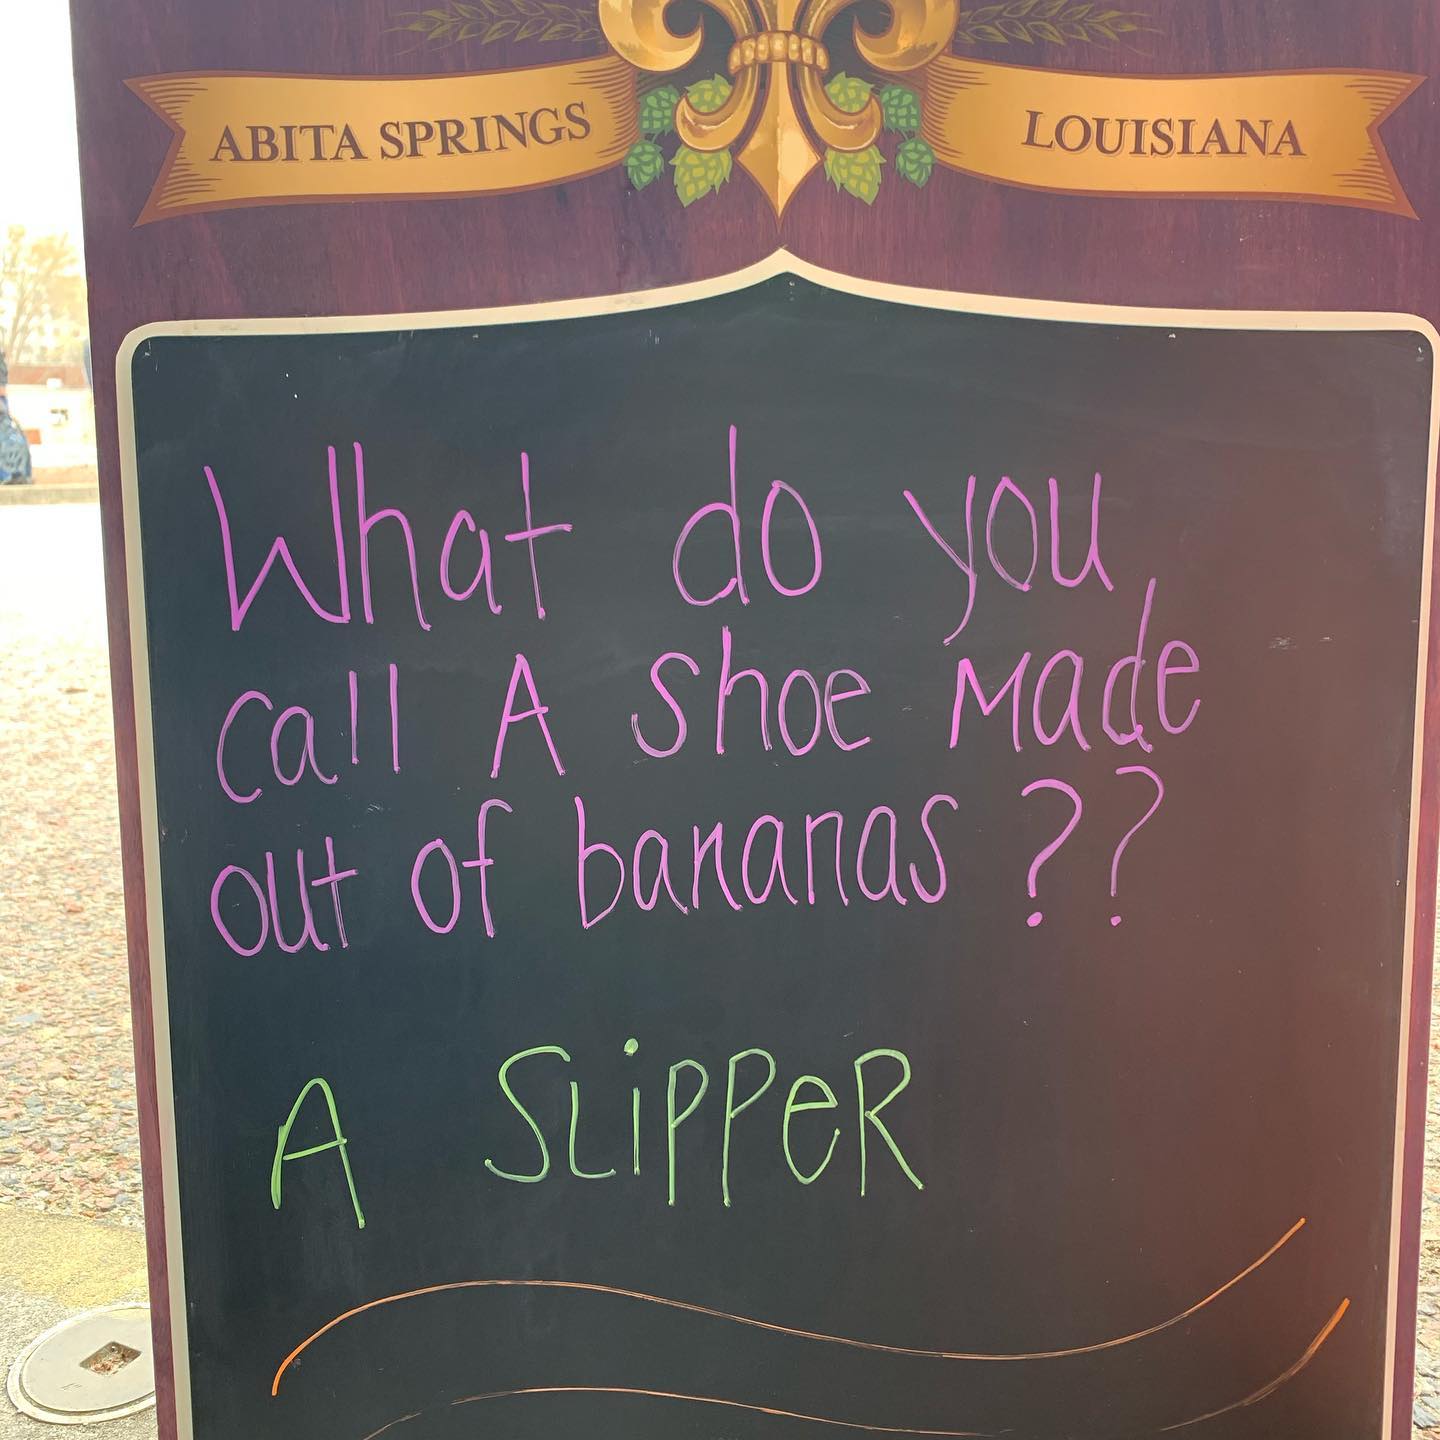 ABITA SPRINGS LOUISIANA
What do you
call A shoe Made
out of bananas ??
A SLiPPeR